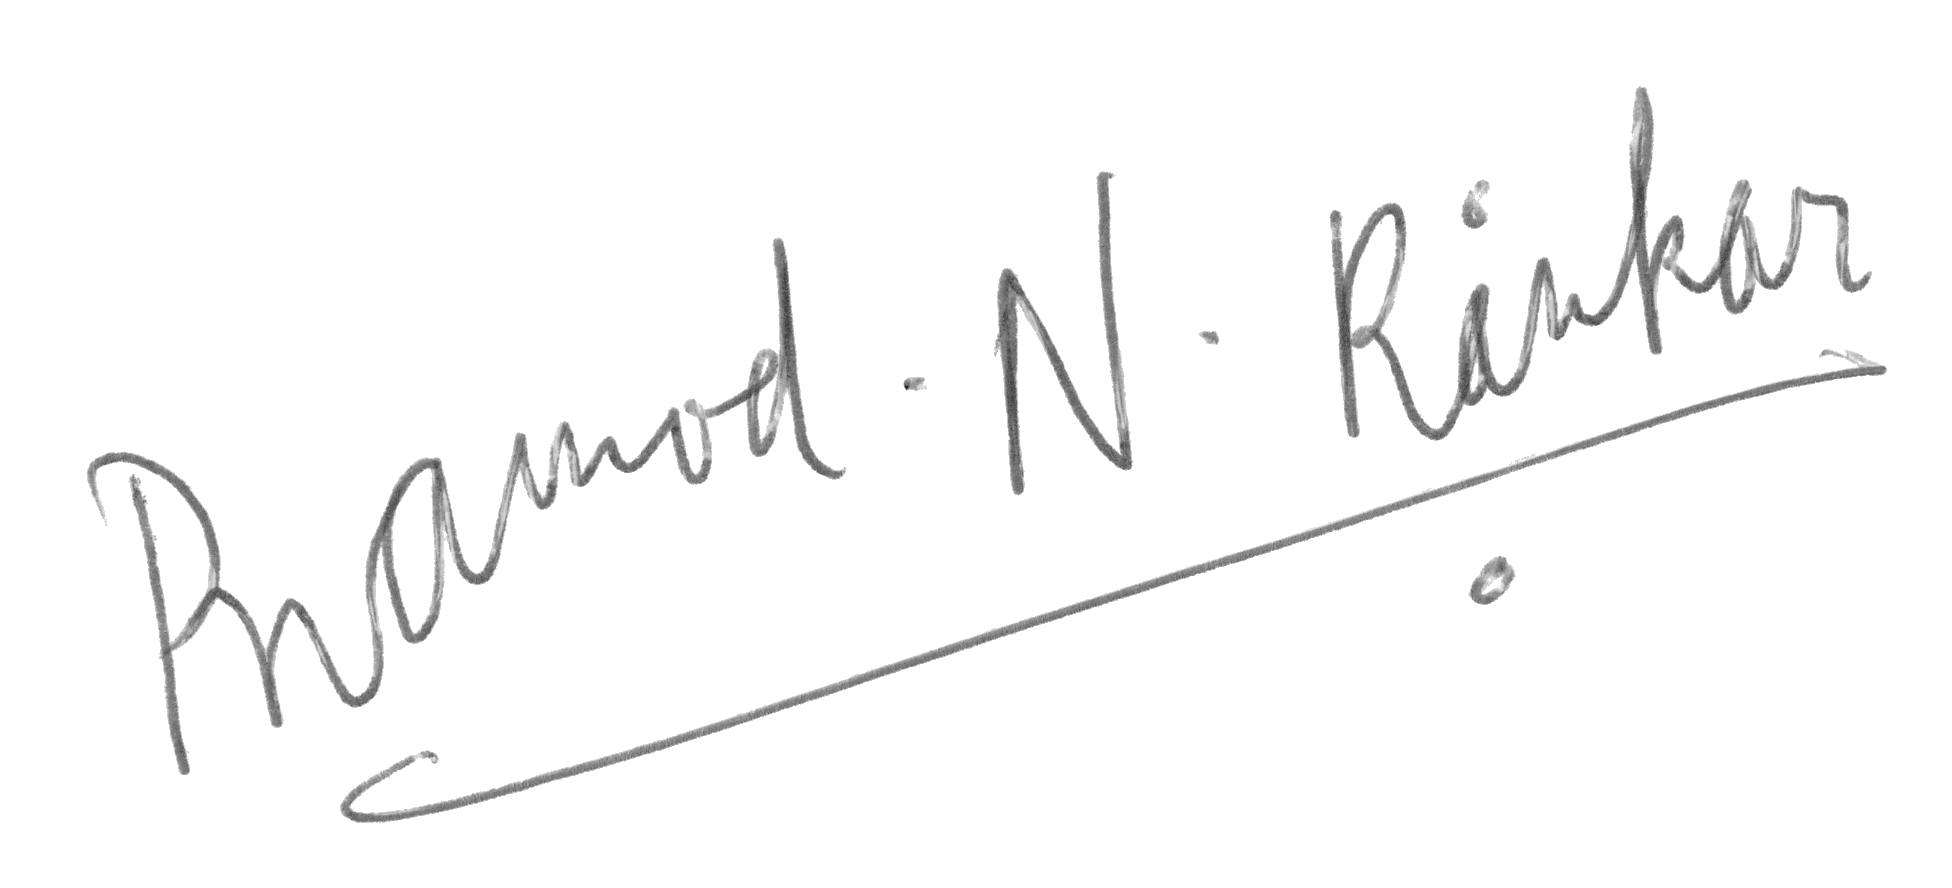 Pramod . N . Rainkar